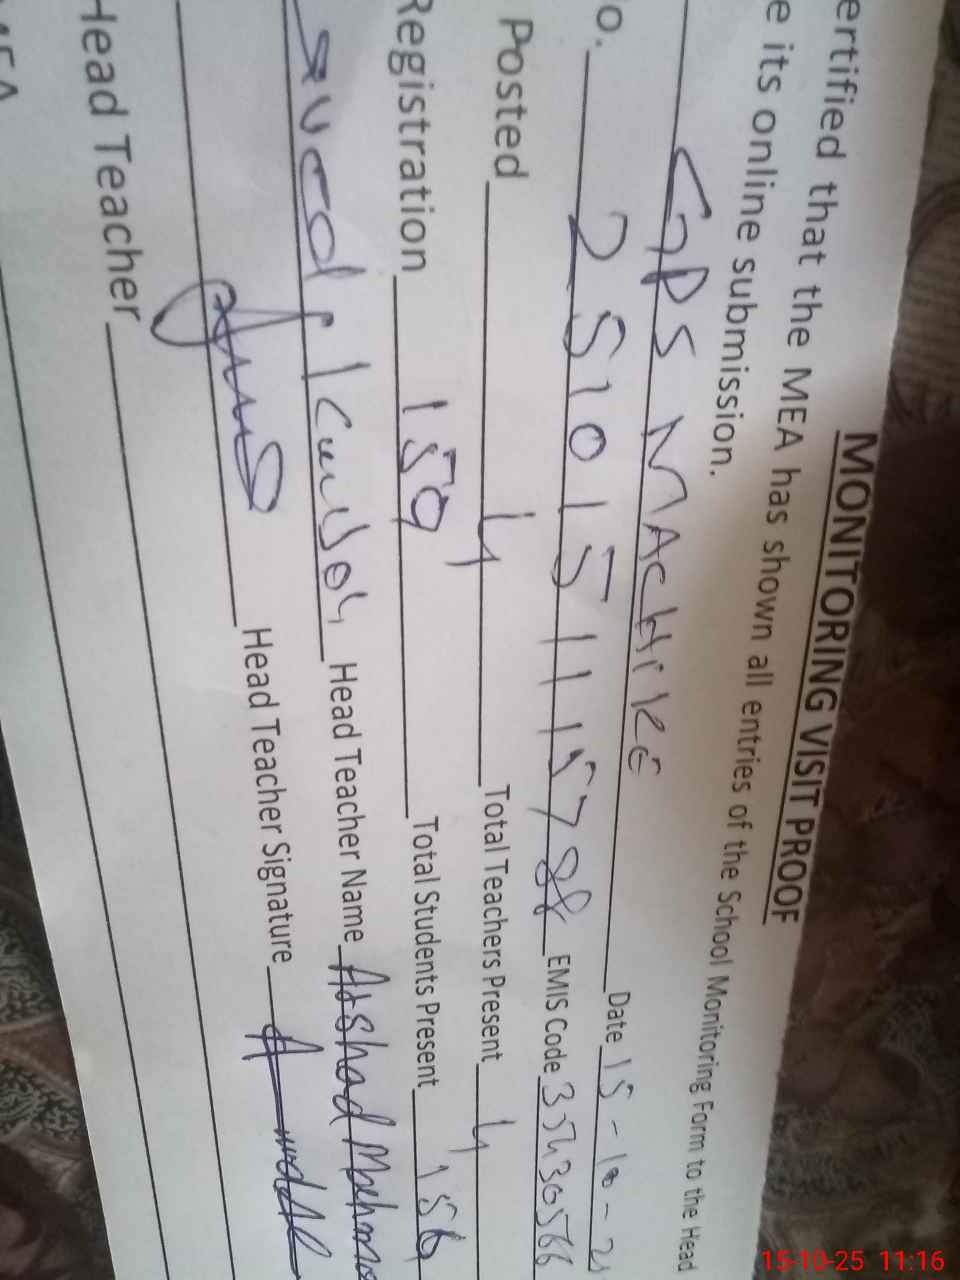 MONITORING VISIT PROOF
ertified that the MEA has shown all entries of the School Monitoring Form to the Head
e its online submission.
GPS MACHIKE Date 15-10-2
o. 251015111578 EMIS Code 35430566
Posted 4 Total Teachers Present 4
Registration 159 Total Students Present 156
Head Teacher Name Arshad Mehmo
Head Teacher Signature
Head Teacher
MEA
15-10-25 11:16